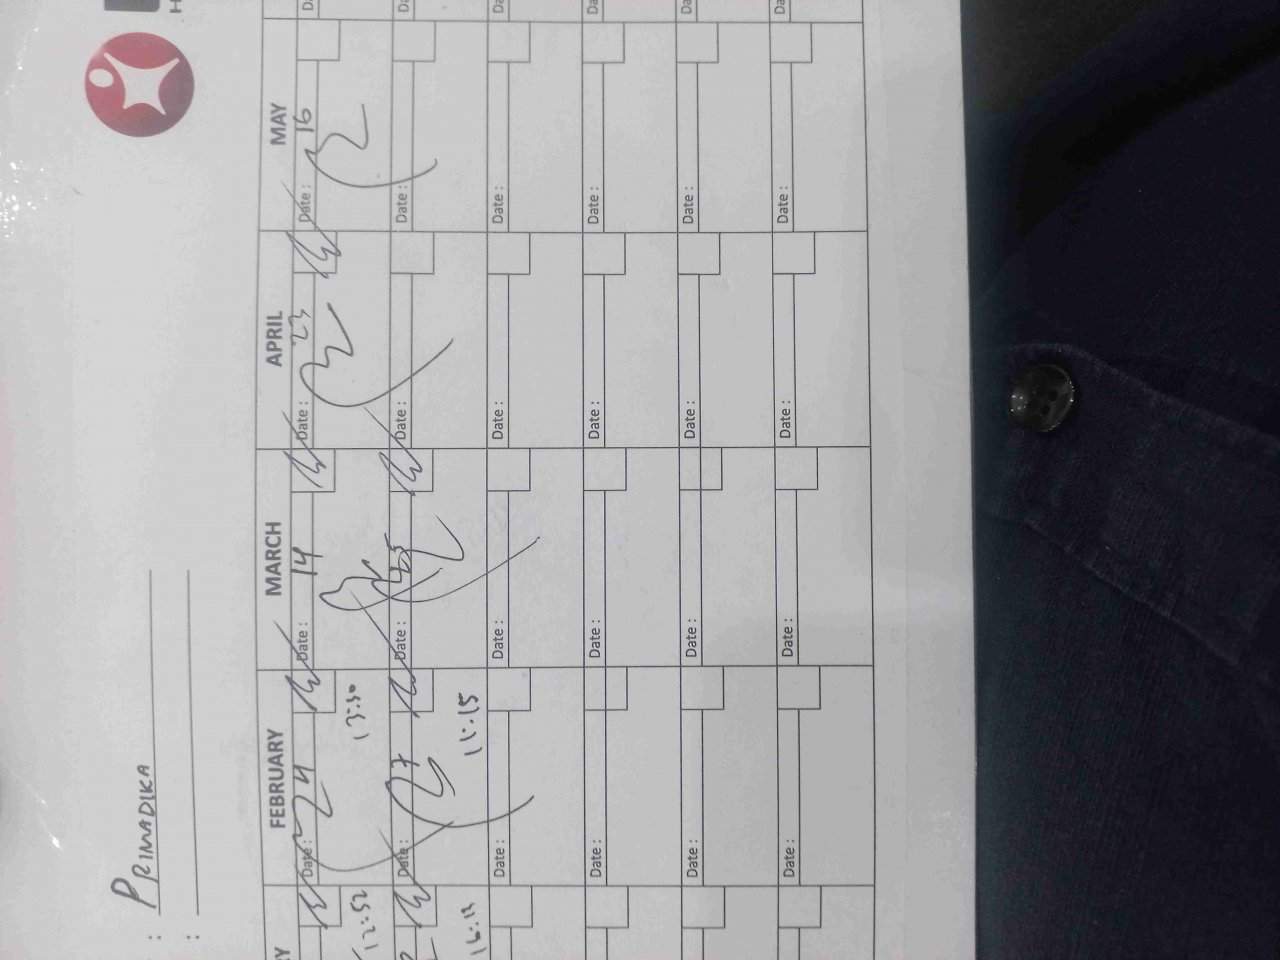 : PRIMADIKA
:
H
RY FEBRUARY MARCH APRIL MAY
Date : 4 Date : 14 Date : 23 Date : 16 Da
12:52 13:30
Date : 27 Date : 25 Date : Date : Da
16:12 11:15
Date : Date : Date : Date : Da
Date : Date : Date : Date : Da
Date : Date : Date : Date : Da
Date : Date : Date : Date : Da